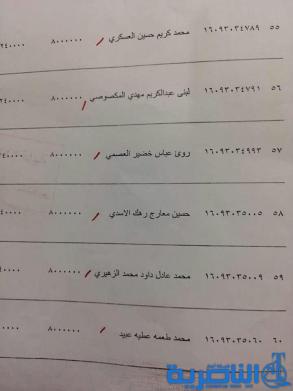 ٥٥ ١٦٠٩٣٠٣٤٧٨٩ محمد كريم حسين العسكري ٨٠٠٠٠٠٠
٥٦ ١٦٠٩٣٠٣٤٧٩١ لبنى عبدالكريم مهدي المكصوصي ٨٠٠٠٠٠٠
٥٧ ١٦٠٩٣٠٣٤٩٩٣ رويٰ عباس خضير العصمي ٨٠٠٠٠٠٠
٥٨ ١٦٠٩٣٠٣٥٠٠٥ حسين معارج رهك الاسدي ٨٠٠٠٠٠٠
٥٩ ١٦٠٩٣٠٣٥٠٠٩ محمد عادل داود محمد الزهيري ٨٠٠٠٠٠٠
٦٠ ١٦٠٩٣٠٣٥٠٦٠ محمد طعمه عطيه عبيد ٨٠٠٠٠٠٠
الناصرية